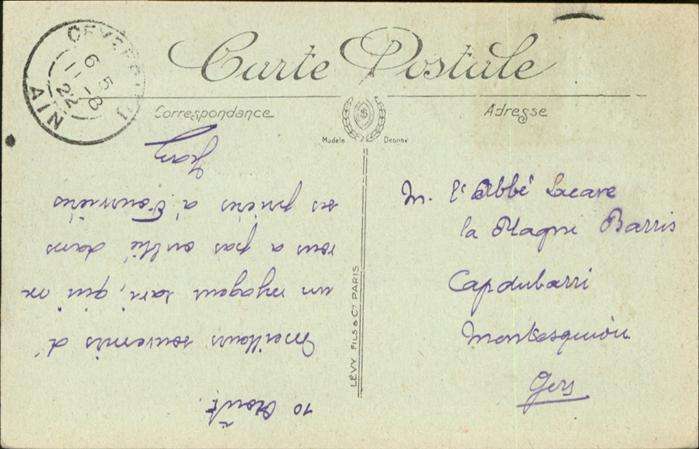 Carte Postale
Correspondance
Adresse
Modèle Déposé
10 Août.
Meilleurs souvenirs d'
un voyageur qui ne
vous a pas oublié dans
ses prières à Fourvière
Jean
M. l'Abbé Lacave
la Plagne Barris
Capdubarri
Montesquiou
Gers
LÉVY FILS & Cie PARIS
6 15
11 -8
22
AIN